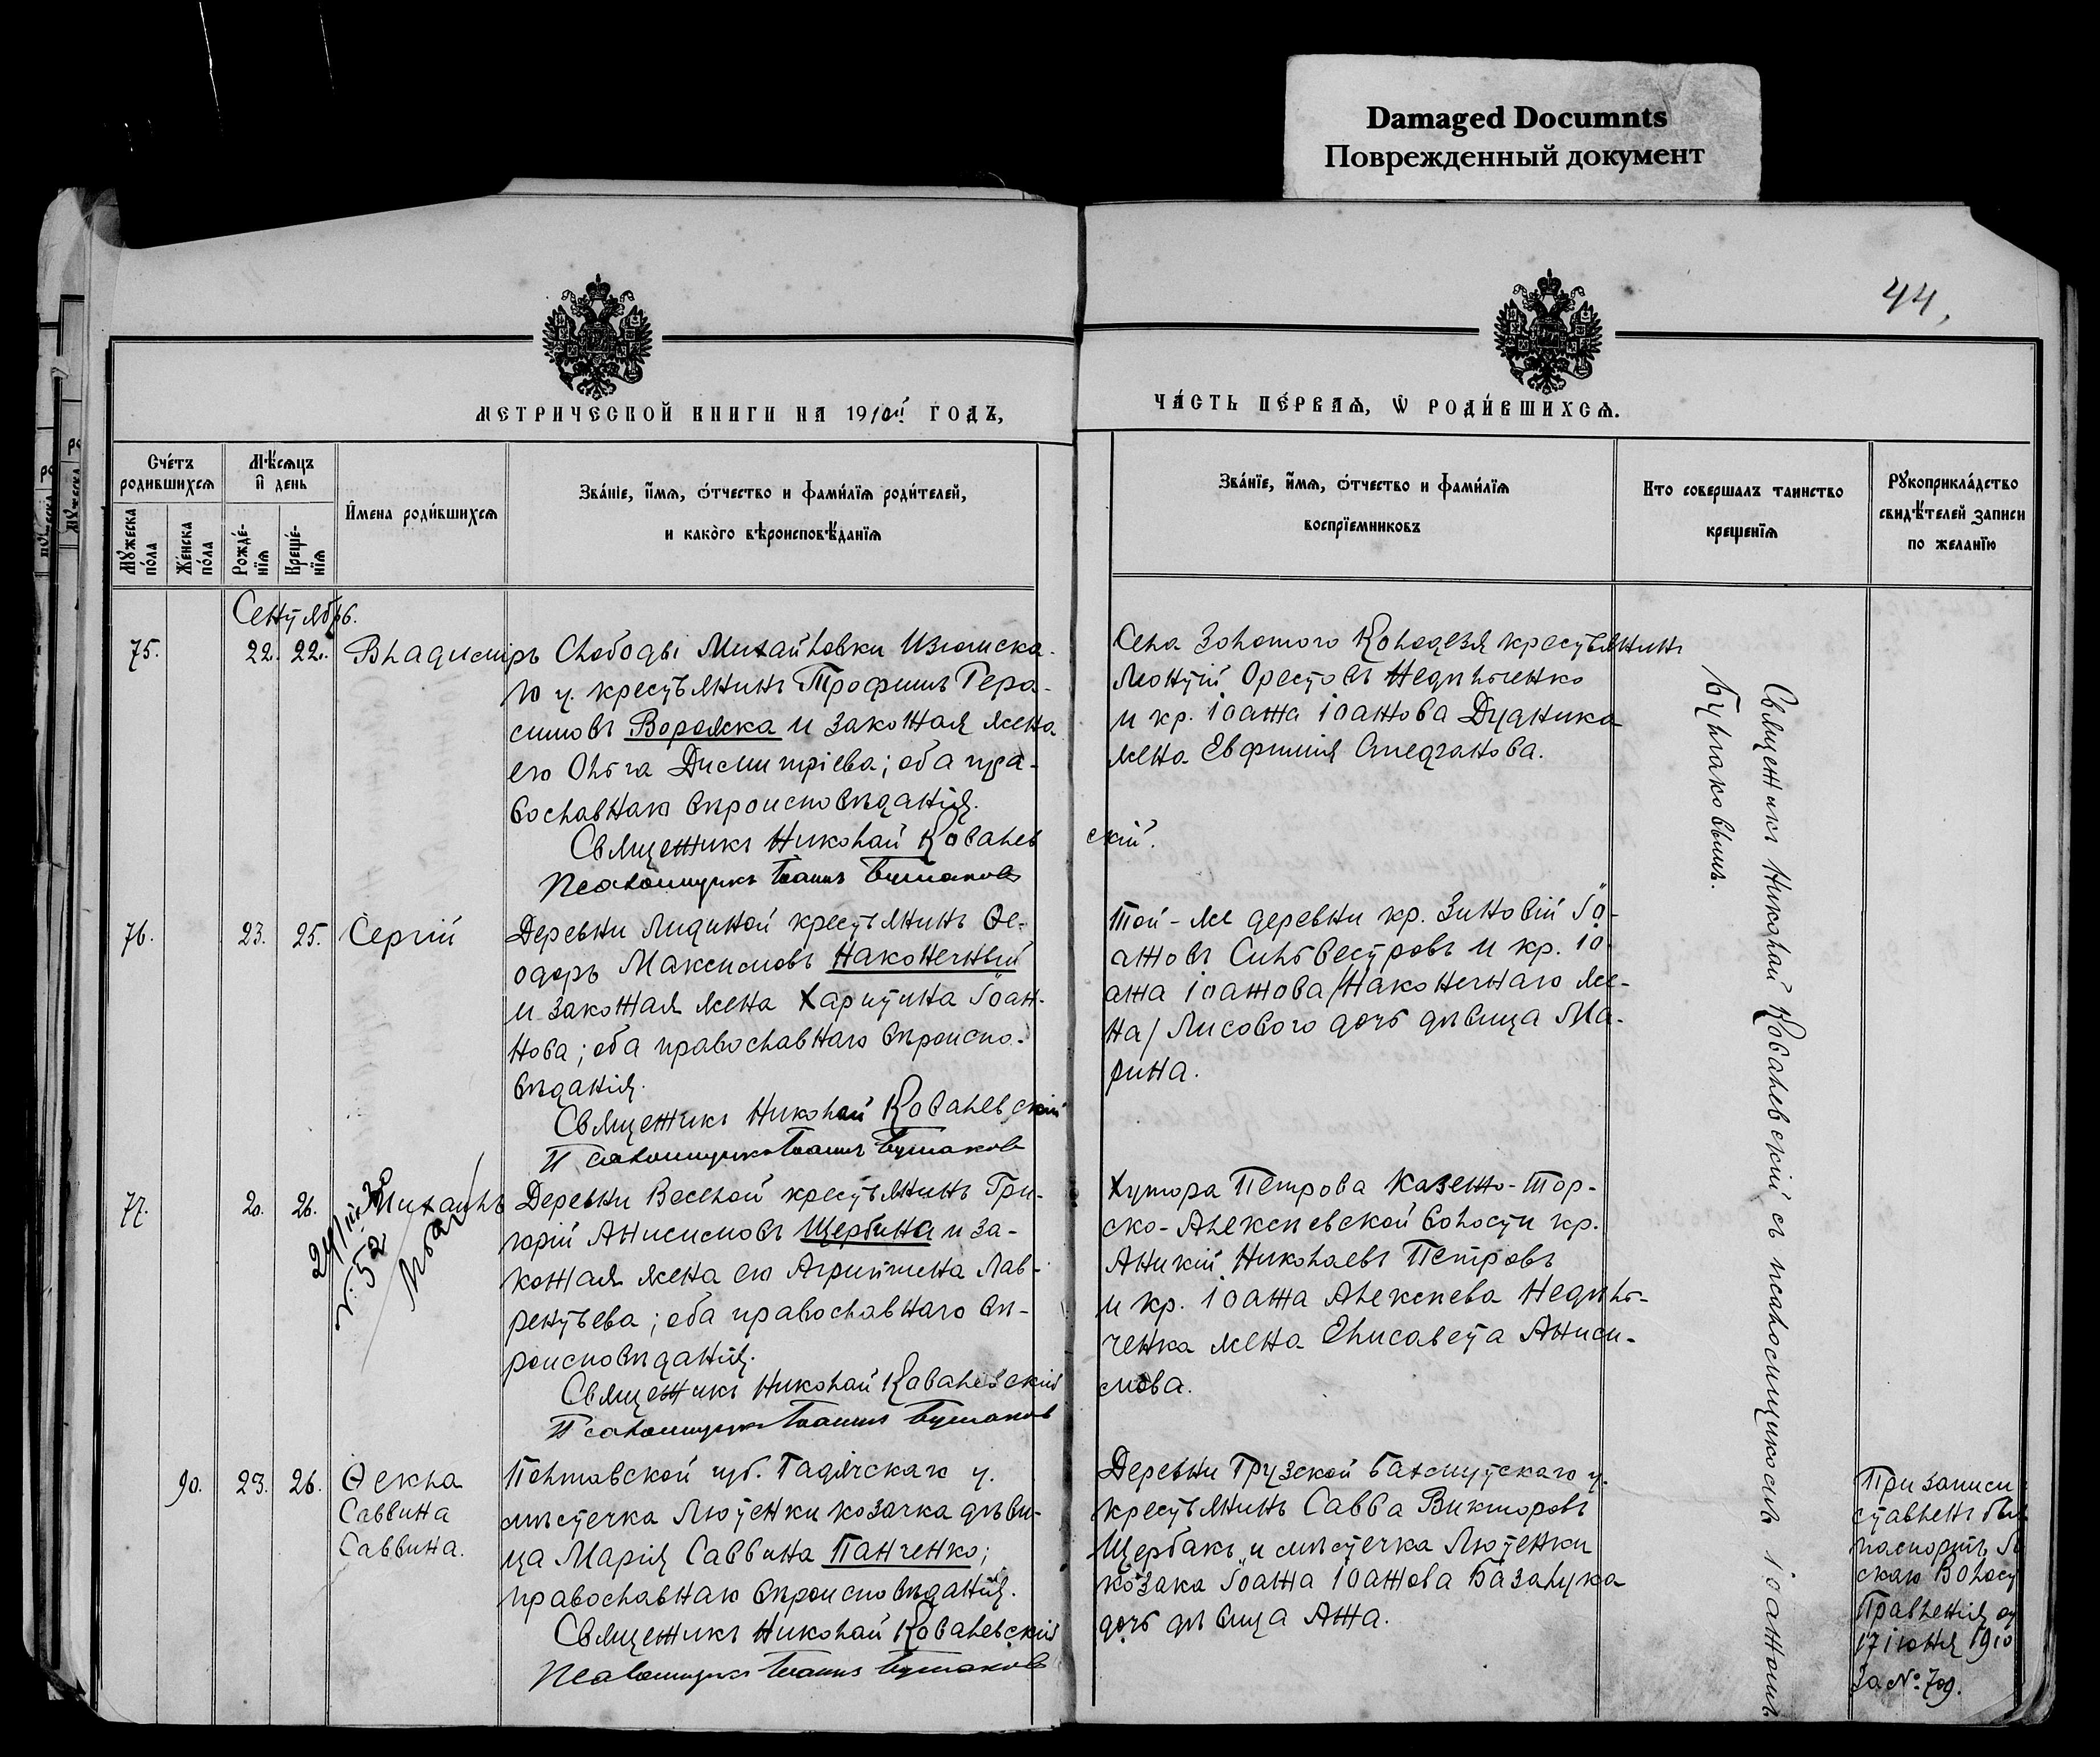 Damaged Documnts
Поврежденный документ
44.
МЕТРИЧЕСКОЙ КНИГИ НА 1910й ГОДЪ,
ЧА́СТЬ ПЕ́РВАѦ, Ѡ РОДИ́ВШИХСѦ.
Сче́тъ родившихсѧ
Мѣ́сѧцъ и҆ день
Мꙋжеска по́ла
Же́нска по́ла
Рожде́-нїѧ
Креще́-нїѧ
И҆мена роди́вшихсѧ
Зва́нїе, и҆́мѧ, ѻ҆́тчество и фами́лїѧ роди́телей,
и како́гѡ вѣроисповѣ́данїѧ
Зва́нїе, и҆́мѧ, ѻ҆́тчество и фами́лїѧ
воспрїемниковъ
Кто совершалъ таинство
крещенїѧ
Рꙋкоприкла́дство
свидѣ́телей записи
по желанїю
Сентябрь.
75.
22. 22.
Владимиръ
Слободы Михайловки Изюмска-
го у. крестьянинъ Трофимъ Гера-
симовъ Воряска и законая жена
его Ольга Дисмитріева; оба пра-
вославнаго вѣроисповѣданія.
Священникъ Николай Ковалев
скій.
Псаломщикъ Іоаннъ Булгаковъ
Села Золотого Колодезя крестьянинъ
Леонтій Орестовъ Недильченко
и кр. Іоанна Іоаннова Дудника
жена Евфимія Стефанова.
76.
23. 25.
Сергій
Деревни Лидиной крестьянинъ Ѳе-
одоръ Максимовъ Наконечный
и законная жена Харитина Іоан-
нова; оба православнаго вѣроиспо-
вѣданія.
Священникъ Николай Ковалевскій
Псаломщикъ Іоаннъ Булгаковъ
Той-же деревни кр. Зиновій Іо-
анновъ Сильвестровъ и кр. Іо-
анна Іоаннова /Наконечнаго же-
на/ Лисового дочь дѣвица Ма-
рина.
77.
20. 26.
Михаилъ
№ 52
Деревни Веселой крестьянинъ Гри-
горій Анисимовъ Щербина и за-
конная жена его Агрипина Лав-
рентьева; оба православнаго вѣ-
роисповѣданія.
Священникъ Николай Ковалевскій
Псаломщикъ Іоаннъ Булгаковъ
Хутора Петрова Казенно-Тор-
ско-Алексѣевской волости кр.
Аникій Николаевъ Петровъ
и кр. Іоанна Алексѣева Недиль-
ченка жена Елисавета Аниси-
мова.
90.
23. 26.
Ѳекла
Саввина
Саввина.
Полтавской губ. Гадячскаго у.
мѣстечка Лютенки козачка дѣви-
ца Марія Саввина Панченко;
православнаго вѣроисповѣданія.
Священникъ Николай Ковалевскій
Псаломщикъ Іоаннъ Булгаковъ
Деревни Грузской Бахмутскаго у.
крестьянинъ Савва Викторовъ
Щербакъ и мѣстечка Лютенки
козака Іоанна Іоаннова Базалука
дочь дѣвица Анна.
Священникъ Николай Ковалевскій съ псаломщикомъ Іоанномъ
Булгаковымъ.
При записи
ставленъ был
паспортъ
скаго Волост
Правленія от
17 іюня 1910
За № 709.